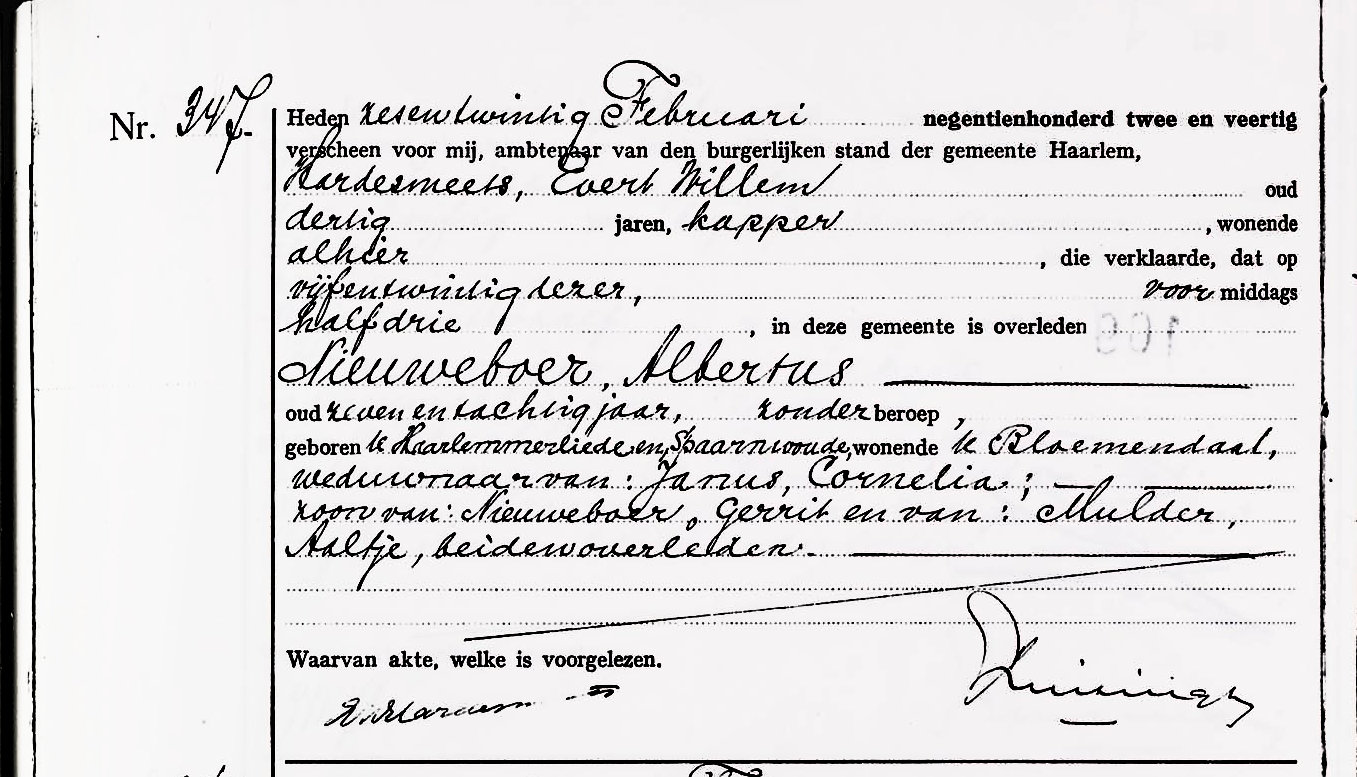 Nr. 347.
Heden zesentwintig Februari negentienhonderd twee en veertig
verscheen voor mij, ambtenaar van den burgerlijken stand der gemeente Haarlem,
Hardesmeets, Evert Willem oud
dertig jaren, kapper, wonende
alhier, die verklaarde, dat op
vijfentwintig dezer, voormiddags
half drie, in deze gemeente is overleden
Nieuweboer, Albertus
oud zevenentachtig jaar, zonder beroep,
geboren te Haarlemmerliede en Spaarnwoude, wonende te Bloemendaal,
weduwnaar van: Janus, Cornelia;
zoon van: Nieuweboer, Gerrit en van: Mulder,
Aaltje, beiden overleden.
Waarvan akte, welke is voorgelezen.